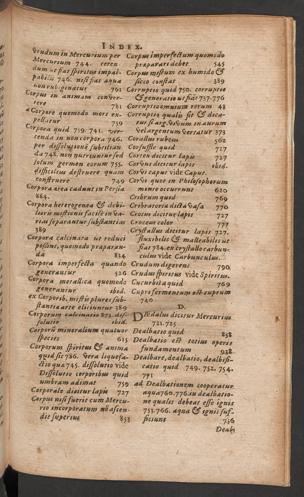 INDEX.
vendum in Mercurium per
Mercurium 744. teren
dum ut fiat spiritus impal-
pabilis 746. nisi fiat aqua
non rubiginatur 761
Corpus in animam conver-
tere 781
Corpore quomodo mors ex-
pellatur 759
Corpora quid 719. 741. ver-
tenda in non corpora 746.
per dissolutionē
da 748. non nutriuntur sed
solum germen eorum 755.
difficilius destruere quam
construere 749
Corpora area cadunt in Persia
884.
Corpora heterogenea & debi-
lioris mistionis facile in va-
rias separantur substantias
389
Corpora calcinata ut reduci
possint, quomodo præparan-
da 834
Corpora imperfecta quando
generantur 526
Corpora metallica quomodo
generantur ibid.
ex Corporib. mistis plures sub-
stantiæ arte eliciuntur 389
Corporum calcinatio 872. dis-
solutio ibid.
Corporū mineralium quatuor
species 615
Corporum spiritus & anima
quid sit 786. vera liquefa-
ctio quæ 745. dissolutio vide
Dissolutio corporibus quid
umbram adimat 759
Corporale dicitur lapis 727
Corpus nisi fuerit cum Mercu-
rio incorporatum nō ascen-
dit superius 858
Corpus imperfectum quomodo
præparari debet 545
Corpus mistum ex humido &
sicco constat 389
Corruptio quid 750. corruptio
& generatio ut fiat 757.776
Corruptio omnium rerum 48
Corruptio qualis sit & deca-
vel augmentum vertatur 375
Corallus rubens 562
Corsuffle quid 727
Cortex dicitur lapis 727
Corvus dicitur lapis ibid.
Corvi caput vide Caput.
Corvo quæ in Philosophorum
monte occurrunt 620
Orbitam quid 769
Orbitatoria dicta vasa 770
Crocus dicitur lapis 727
Croceus color 777
Crystallus dicitur lapis 727.
flexibilis & malleabilis ut
fiat 784. ex crystallo carbun-
culus vide Carbunculus.
Crudum digerens 790.
Crudus spiritus vide Spiritus.
Cucurbita quid 769
Cuprosermentum est cuprum
740
D.
Dædalus dicitur Mercurius
721.725
Dealbatio quid 858
Dealbatio est totius operis
fundamentum 928
Dealbare, dealbatio, dealbifi-
catio quid 749. 752. 754.
771
ad Dealbationem cooperatur
aqua 760.776. in dealbatio-
ne qualis debeat esse ignis
753.766. aqua & ignis suf-
ficiunt 736
Dealb